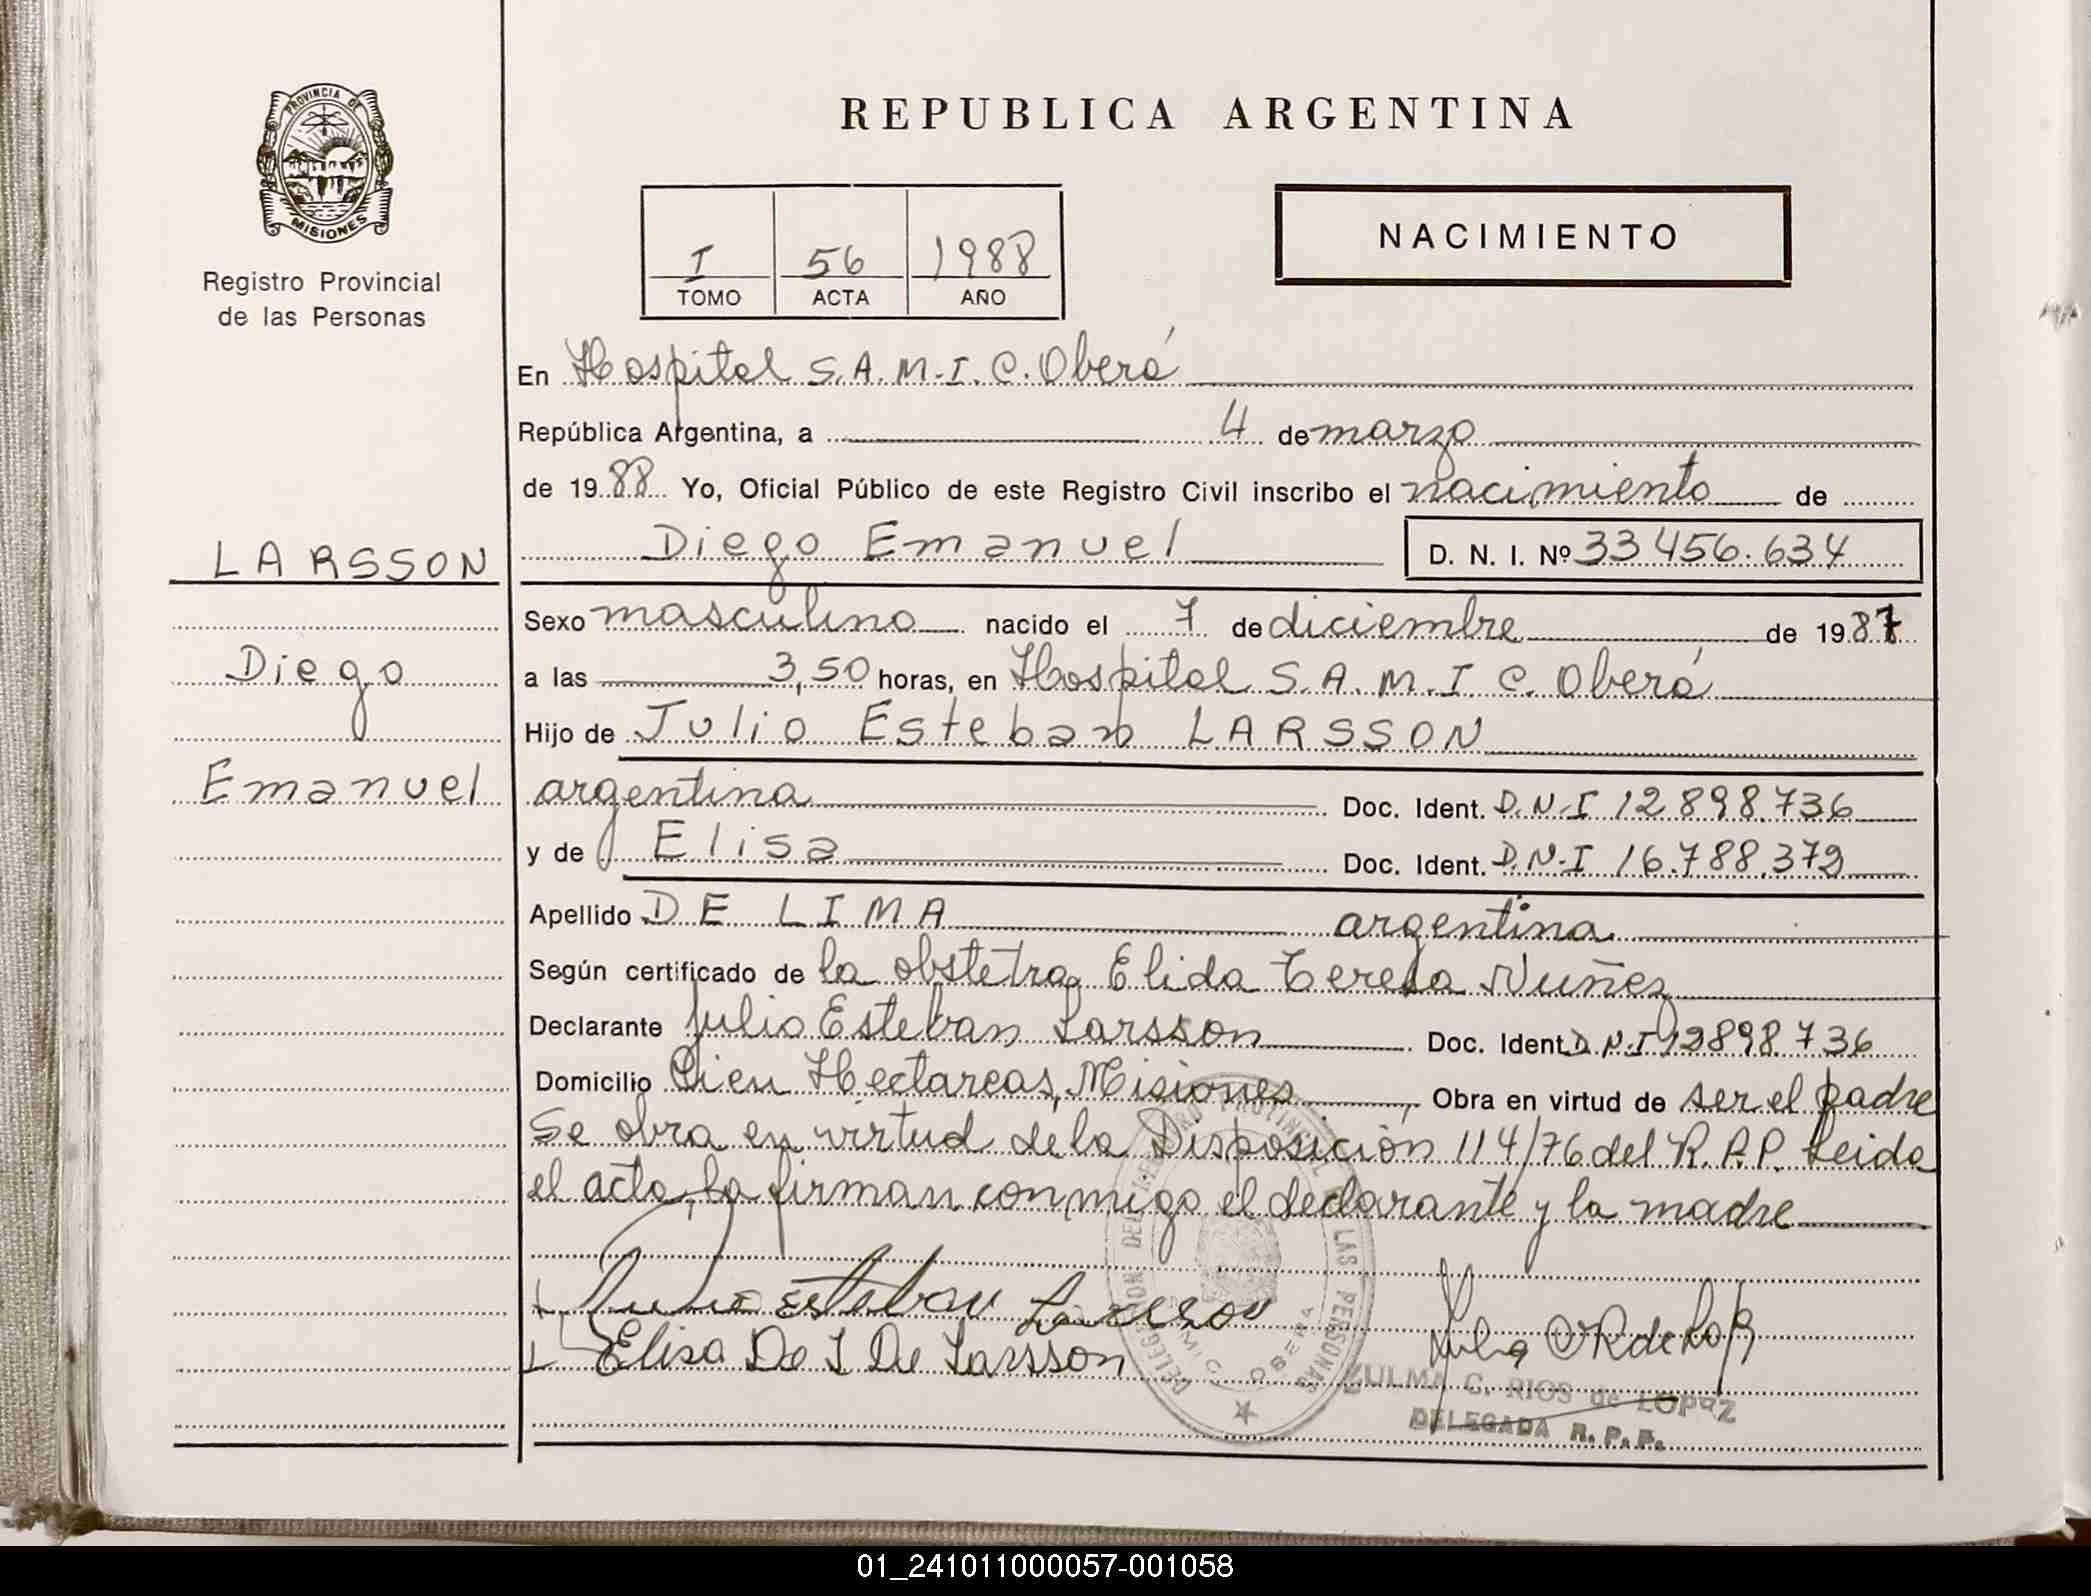 PROVINCIA DE
MISIONES
Registro Provincial
de las Personas
LARSSON
Diego
Emanuel
REPUBLICA ARGENTINA
I 56 1988
TOMO ACTA AÑO
NACIMIENTO
En Hospital S.A.M.I.C. Oberá
República Argentina, a 4 de marzo
de 1988 Yo, Oficial Público de este Registro Civil inscribo el nacimiento de
Diego Emanuel D. N. I. Nº 33456.634
Sexo masculino nacido el 7 de diciembre de 1987
a las 3,50 horas, en Hospital S.A.M.I C. Oberá
Hijo de Julio Esteban LARSSON
argentina Doc. Ident. D.N.I 12898.736
y de Elisa Doc. Ident. D.N.I 16.788.372
Apellido DE LIMA argentina
Según certificado de la obstetra Elida Teresa Nuñez
Declarante Julio Esteban Larsson Doc. Ident. D.N.I 12898736
Domicilio Cien Hectareas, Misiones, Obra en virtud de ser el padre
Se obra en virtud de la Disposición 114/76 del R.P.P. Leida
el acta, la firman conmigo el declarante y la madre
Esteban Larsson
Elisa De L De Larsson
DELEGACION DEL REGISTRO PROVINCIAL DE LAS PERSONAS
OBERA
ZULMA C. RIOS de LOPEZ
DELEGADA R. P. P.
01_241011000057-001058